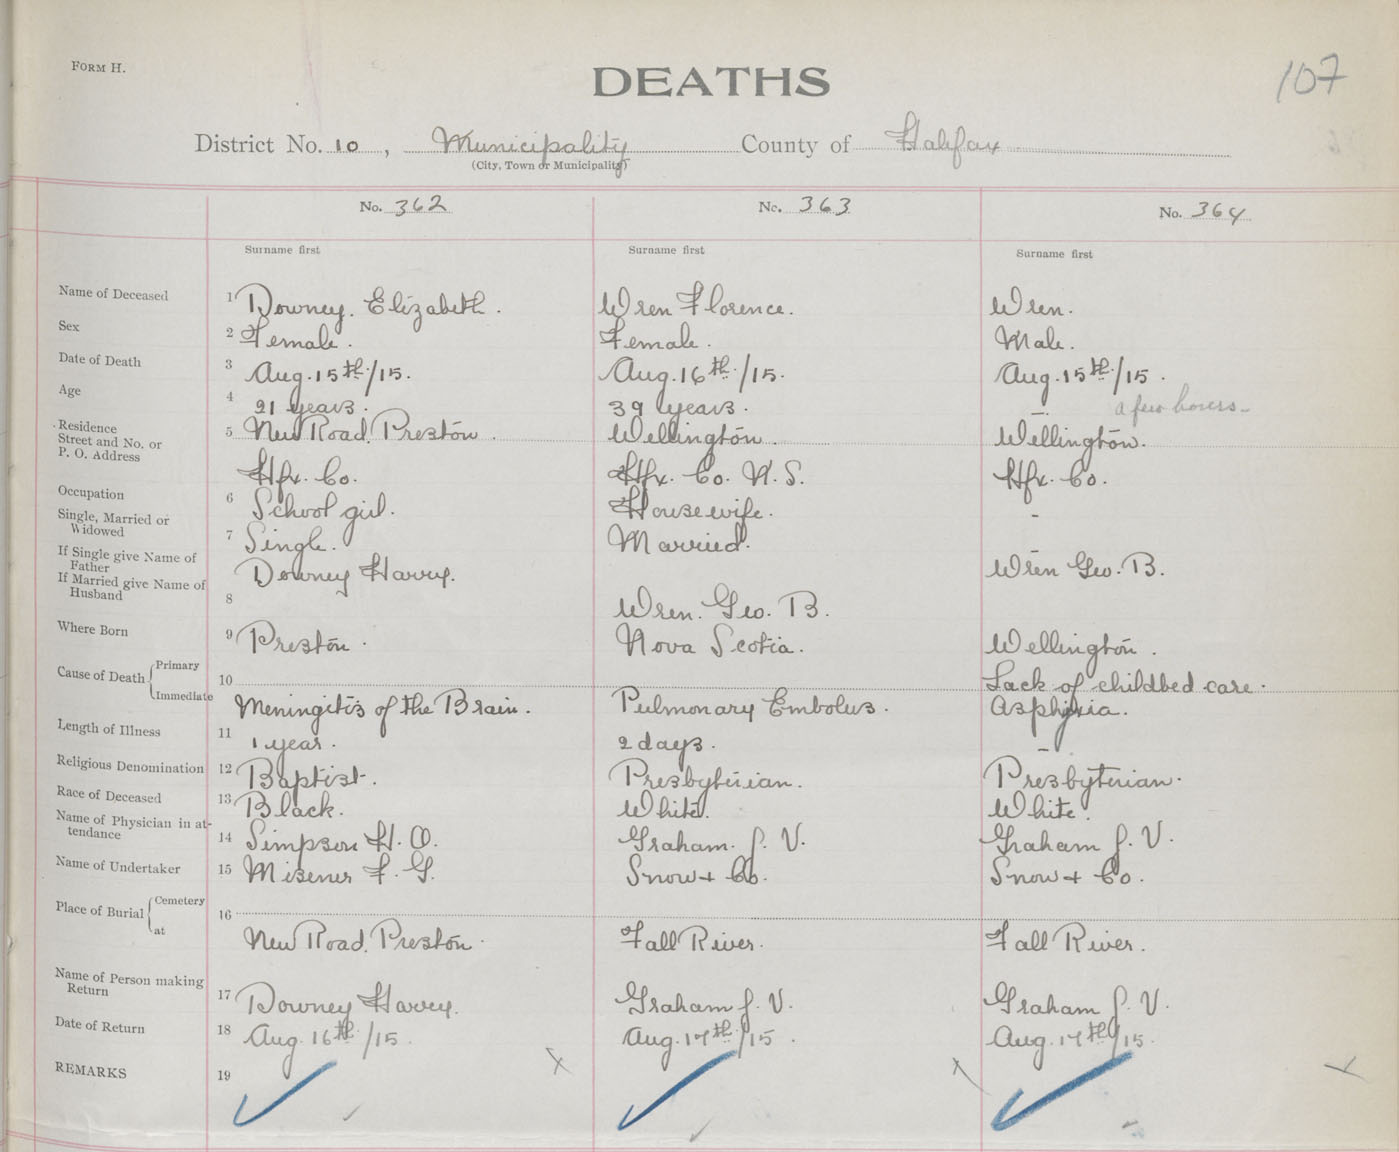 FORM H.
DEATHS
107
District No. 10, Municipality County of Halifax
(City, Town or Municipality)
No. 362 No. 363 No. 364
Surname first Surname first Surname first
Name of Deceased 1 Downey. Elizabeth. Wren Florence. Wren.
Sex 2 Female. Female. Male.
Date of Death 3 Aug. 15th/15. Aug. 16th/15. Aug. 15th/15.
Age 4 21 years. 39 years. - a few hours -
Residence Street and No. or P. O. Address 5 New Road, Preston. Wellington. Wellington.
Hfx. Co. Hfx. Co. N. S. Hfx. Co.
Occupation 6 School girl. Housewife. -
Single, Married or Widowed 7 Single. Married. -
If Single give Name of Father Downey Harry. Wren Geo. B.
If Married give Name of Husband 8 Wren. Geo. B.
Where Born 9 Preston. Nova Scotia. Wellington.
Cause of Death Primary 10 Lack of childbed care.
Immediate Meningitis of the Brain. Pulmonary Embolus. Asphyxia.
Length of Illness 11 1 year. 2 days. -
Religious Denomination 12 Baptist. Presbyterian. Presbyterian.
Race of Deceased 13 Black. White. White.
Name of Physician in attendance 14 Simpson H. O. Graham. J. V. Graham J. V.
Name of Undertaker 15 Misener F. G. Snow + Co. Snow + Co.
Place of Burial Cemetery 16
at New Road, Preston. Fall River. Fall River.
Name of Person making Return 17 Downey Harry. Graham J. V. Graham J. V.
Date of Return 18 Aug. 16th/15. Aug. 17th/15. Aug. 17th/15.
REMARKS 19